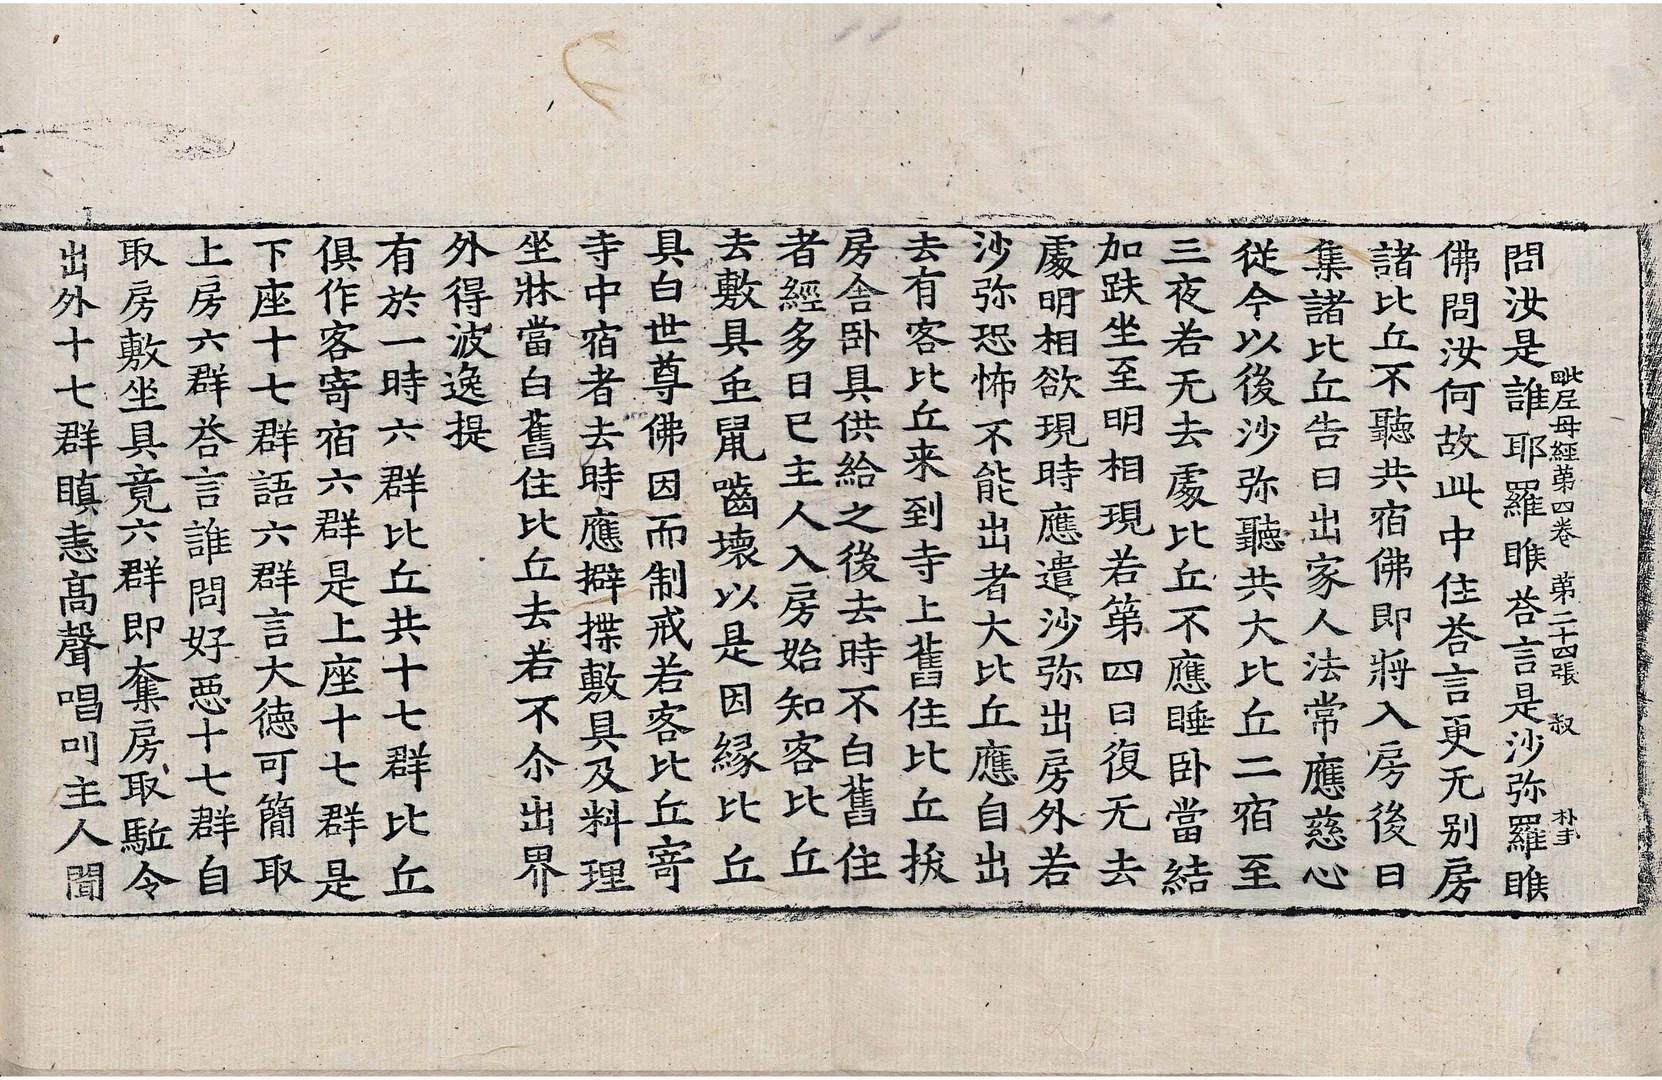 毗尼母經第四卷　第二十四張　叔　朴手
問汝是誰耶羅睺荅言是沙弥羅睺
佛問汝何故此中住荅言更无别房
諸比丘不聽共宿佛即將入房後日
集諸比丘告曰出家人法常應慈心
從今以後沙弥聽共大比丘二宿至
三夜若无去處比丘不應睡卧當結
加趺坐至明相現若第四日復无去
處明相欲現時應遣沙弥出房外若
沙弥恐怖不能出者大比丘應自出
去有客比丘来到寺上舊住比丘抜
房舍卧具供給之後去時不白舊住
者經多日已主人入房始知客比丘
去敷具虫鼠嚙壞以是因緣比丘
具白世尊佛因而制戒若客比丘寄
寺中宿者去時應擗揲敷具及料理
坐牀當白舊住比丘去若不尒出界
外得波逸提
有於一時六群比丘共十七群比丘
俱作客寄宿六群是上座十七群是
下座十七群語六群言大德可簡取
上房六群荅言誰問好惡十七群自
取房敷坐具竟六群即奪房取駈令
出外十七群瞋恚髙聲唱叫主人聞